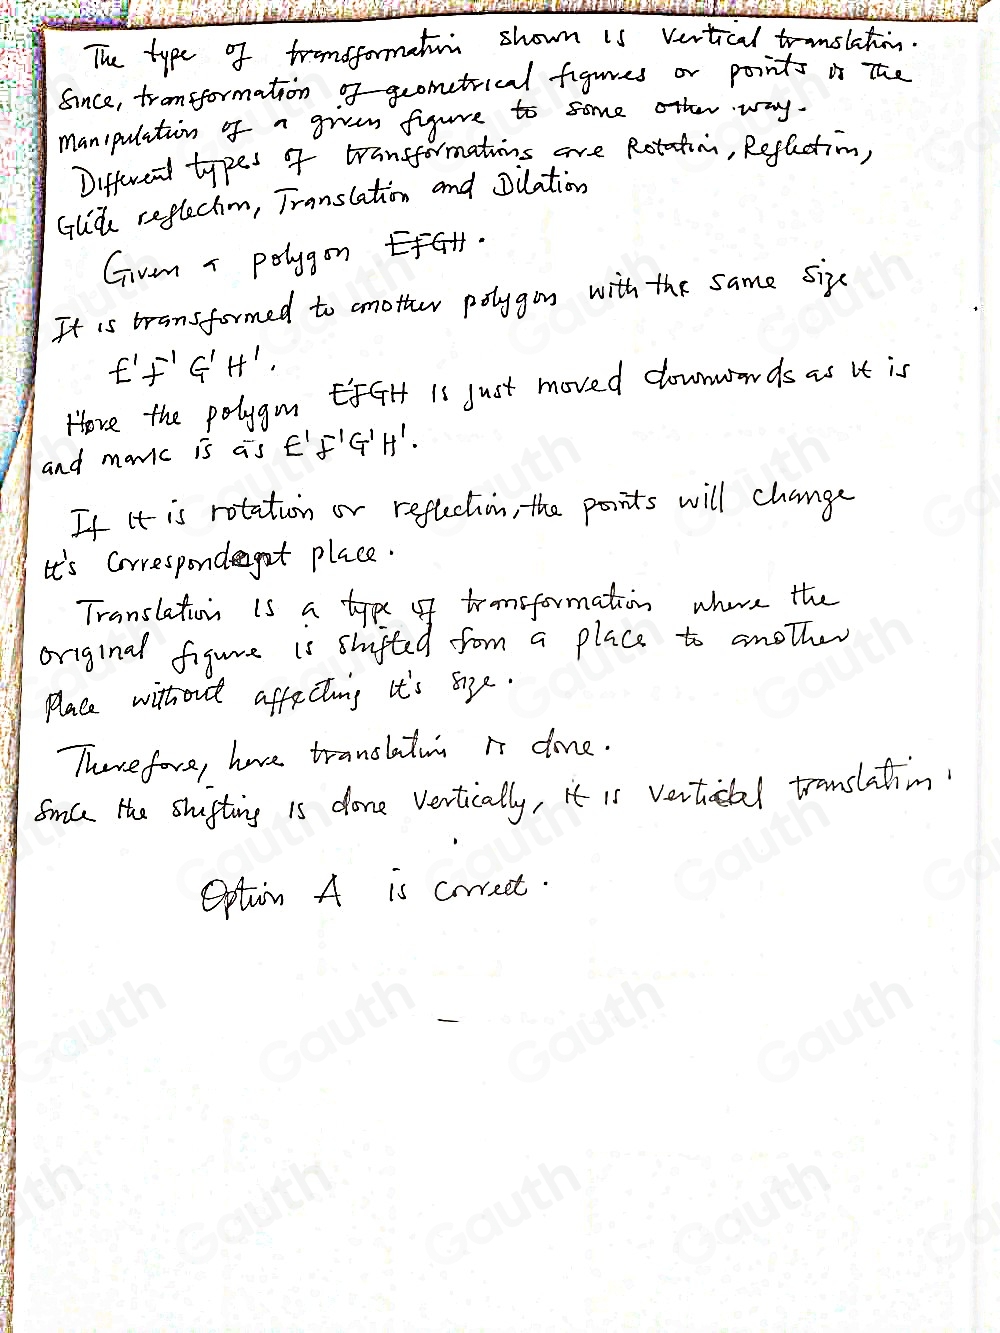 The type of transformation shown is vertical translation.
Since, transformation of geometrical figures or points is the
manipulation of a given figure to some other way.
Different types of transformations are Rotation, Reflection,
Glide reflection, Translation and Dilation
Given a polygon EFGH.
It is transformed to another polygon with the same size
E'F'G'H'.
Here the polygon EFGH is just moved downwards as it is
and mark is as E'F'G'H'.
If it is rotation or reflection, the points will change
it's correspondent place.
Translation is a type of transformation where the
original figure is shifted from a place to another
place without affecting it's size.
Therefore, here translation is done.
Since the shifting is done vertically, it is vertical translation.
Option A is correct.